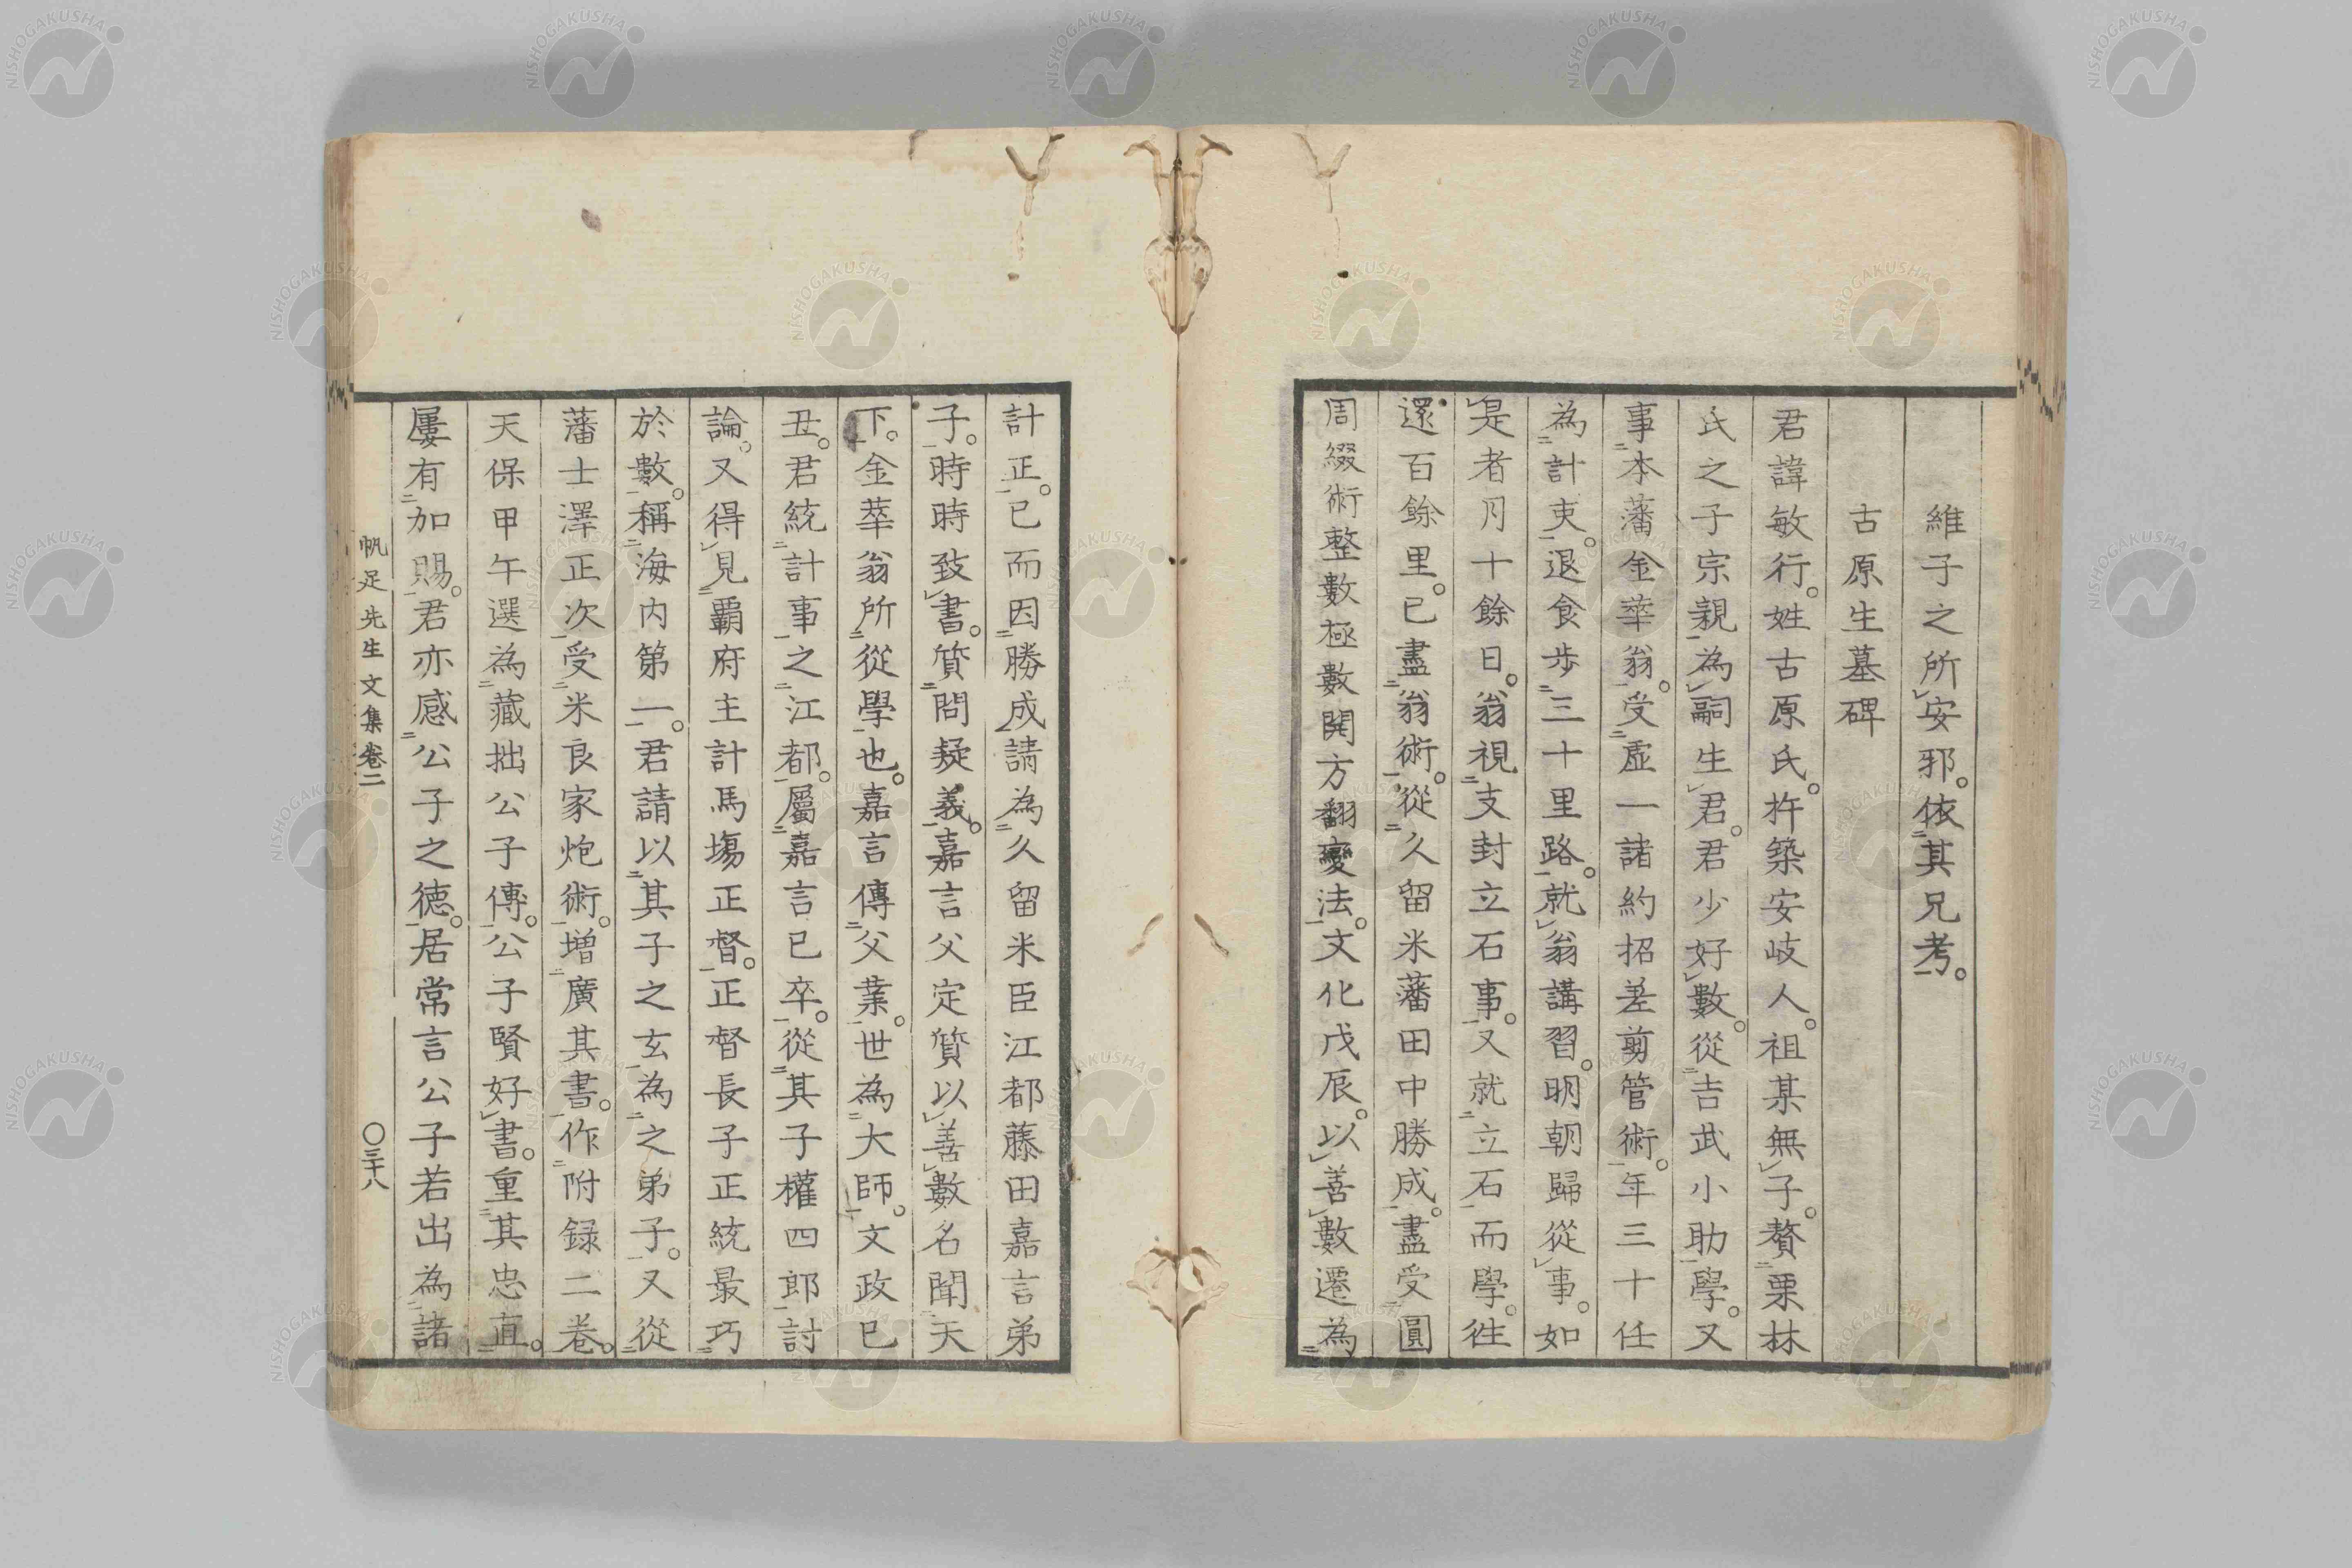 維子之所安邪。依其兄考。
古原生墓碑
君諱敏行。姓古原氏。杵築安岐人。祖某無子。贅栗林
氏之子宗親為嗣生君。君少好數。從吉武小助學。又
事本藩金華翁。受虛一諸約招差剪管術。年三十任
為計吏。退食歩三十里路。就翁講習。明朝歸從事。如
是者月十餘日。翁視支封立石事。又就立石而學。徃
還百餘里。已盡翁術。從久留米藩田中勝成。盡受圓
周綴術整數極數開方翻變法。文化戊辰。以善數遷為
計正。已而因勝成請為久留米臣江都藤田嘉言弟
子。時時致書。質問疑義。嘉言父定質以善數名聞天
下。金華翁所從學也。嘉言傳父業。世為大師。文政已
丑。君統計事之江都。屬嘉言已卒。從其子權四郎討
論。又得見覇府主計馬場正督。正督長子正統最巧
於數。稱海内第一。君請以其子之玄為之弟子。又從
藩士澤正次受米良家炮術。増廣其書。作附録二卷。
天保甲午選為藏拙公子傳。公子賢好書。重其忠直。
屢有加賜。君亦感公子之德。居常言公子若出為諸
帆足先生文集卷二 〇三十八
NISHOGAKUSHA